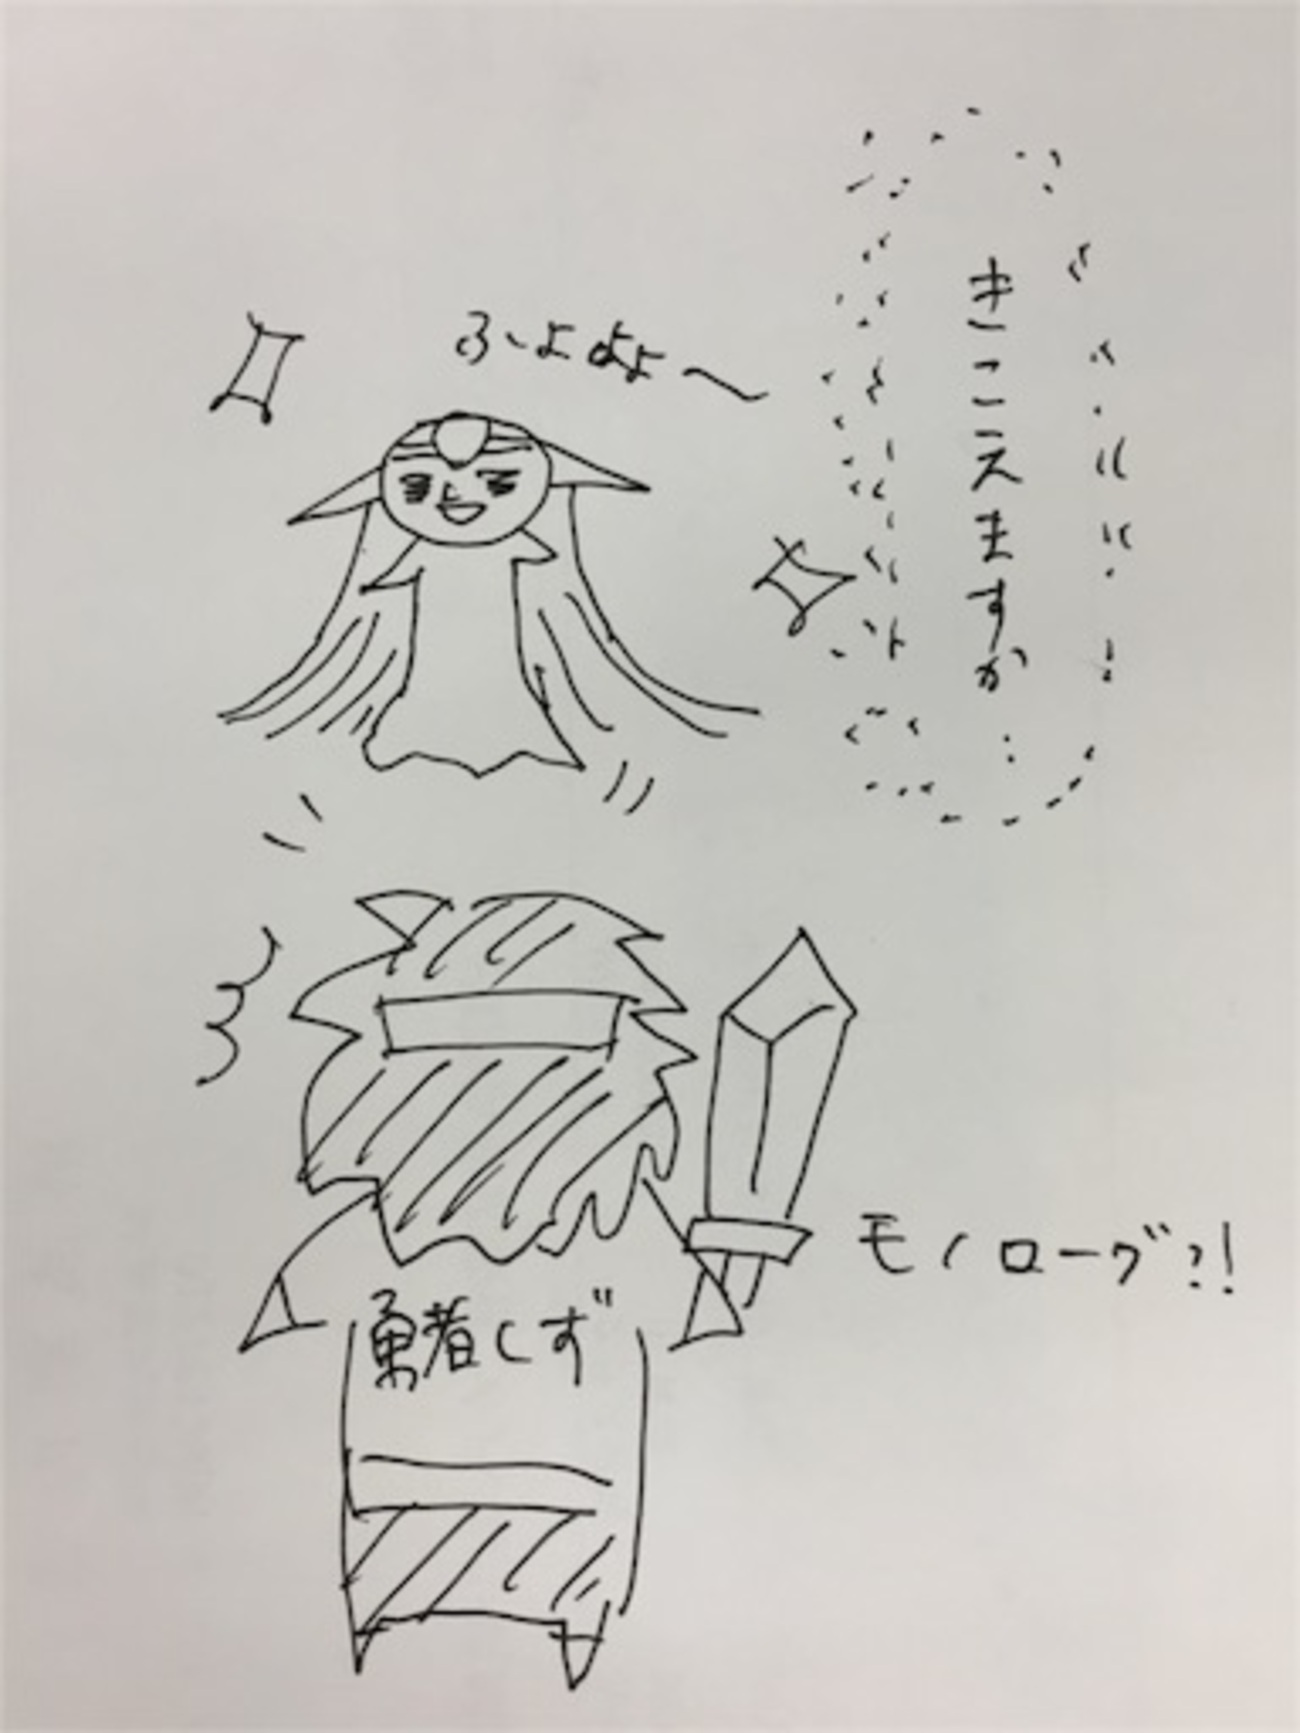 きこえますか
ふよよよ〜
モノローグ?!
勇者しず